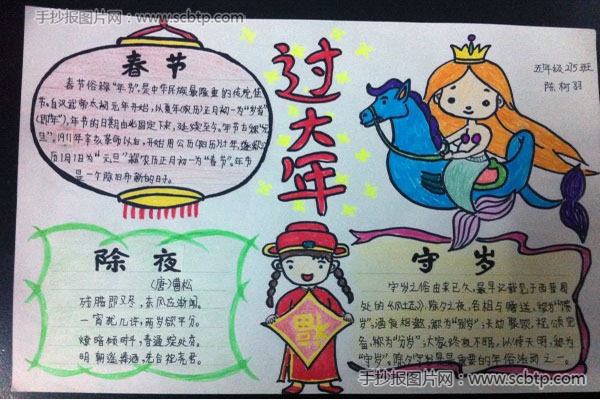 手抄报图片网：www.scbtp.com
春节
春节俗称“年节”,是中华民族最隆重的传统佳
节。自汉武帝太初元年开始,以夏年(农历)正月初一为“岁首”
(即年”),年节的日期由此固定下来,延续至今。年节古称“元
旦”。1911年辛亥革命以后,开始用公历(阳历)计年,遂称公
历1月1日为“元旦”,称农历正月初一为“春节”。年节
是一个除旧布新的日子。
过大年
五年级215班
陈柯羽
除夜
(唐)曹松
残腊即又尽,东风应渐闻。
一宵犹几许,两岁欲平分。
燎暗倾时斗,春通绽处芬。
明朝遥捧酒,先合祝尧君。
福
守岁
守岁之俗由来已久,最早记载见于西晋周
处的《风土志》:除夕之夜,各相与赠送,称为“馈
岁”;酒食相邀,称为“别岁”;长幼聚饮,祝颂完
备,称为“分岁”;大家终夜不眠,以待天明,称为
“守岁”。除夕守岁是最重要的年俗活动之一。
手抄报图片网：www.scbtp.com